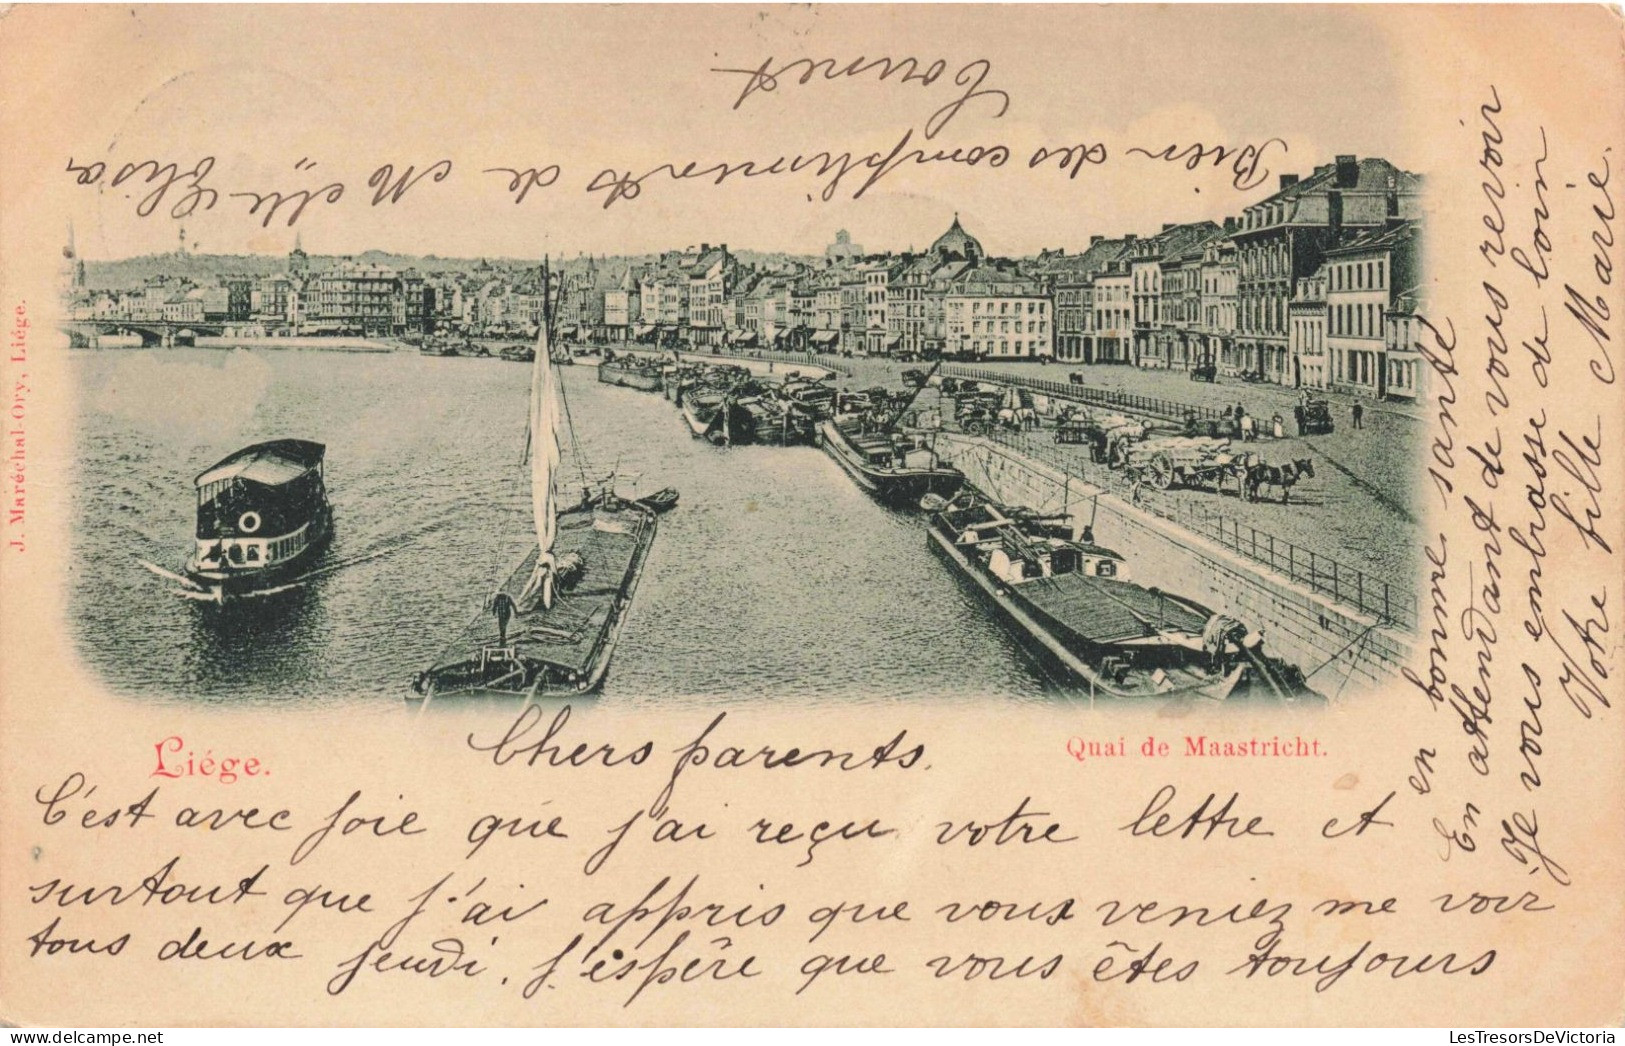 Liége.
Quai de Maastricht.
Chers parents.
C'est avec joie que j'ai reçu votre lettre et
surtout que j'ai appris que vous veniez me voir
tous deux jeudi. J'espère que vous êtes toujours
en bonne santé
En attendant de vous revoir
Je vous embrasse de loin
Votre fille Marie.
Bien des compliments de Melle Elisa
J. Maréchal-Ory, Liége.
LesTresorsDeVictoria